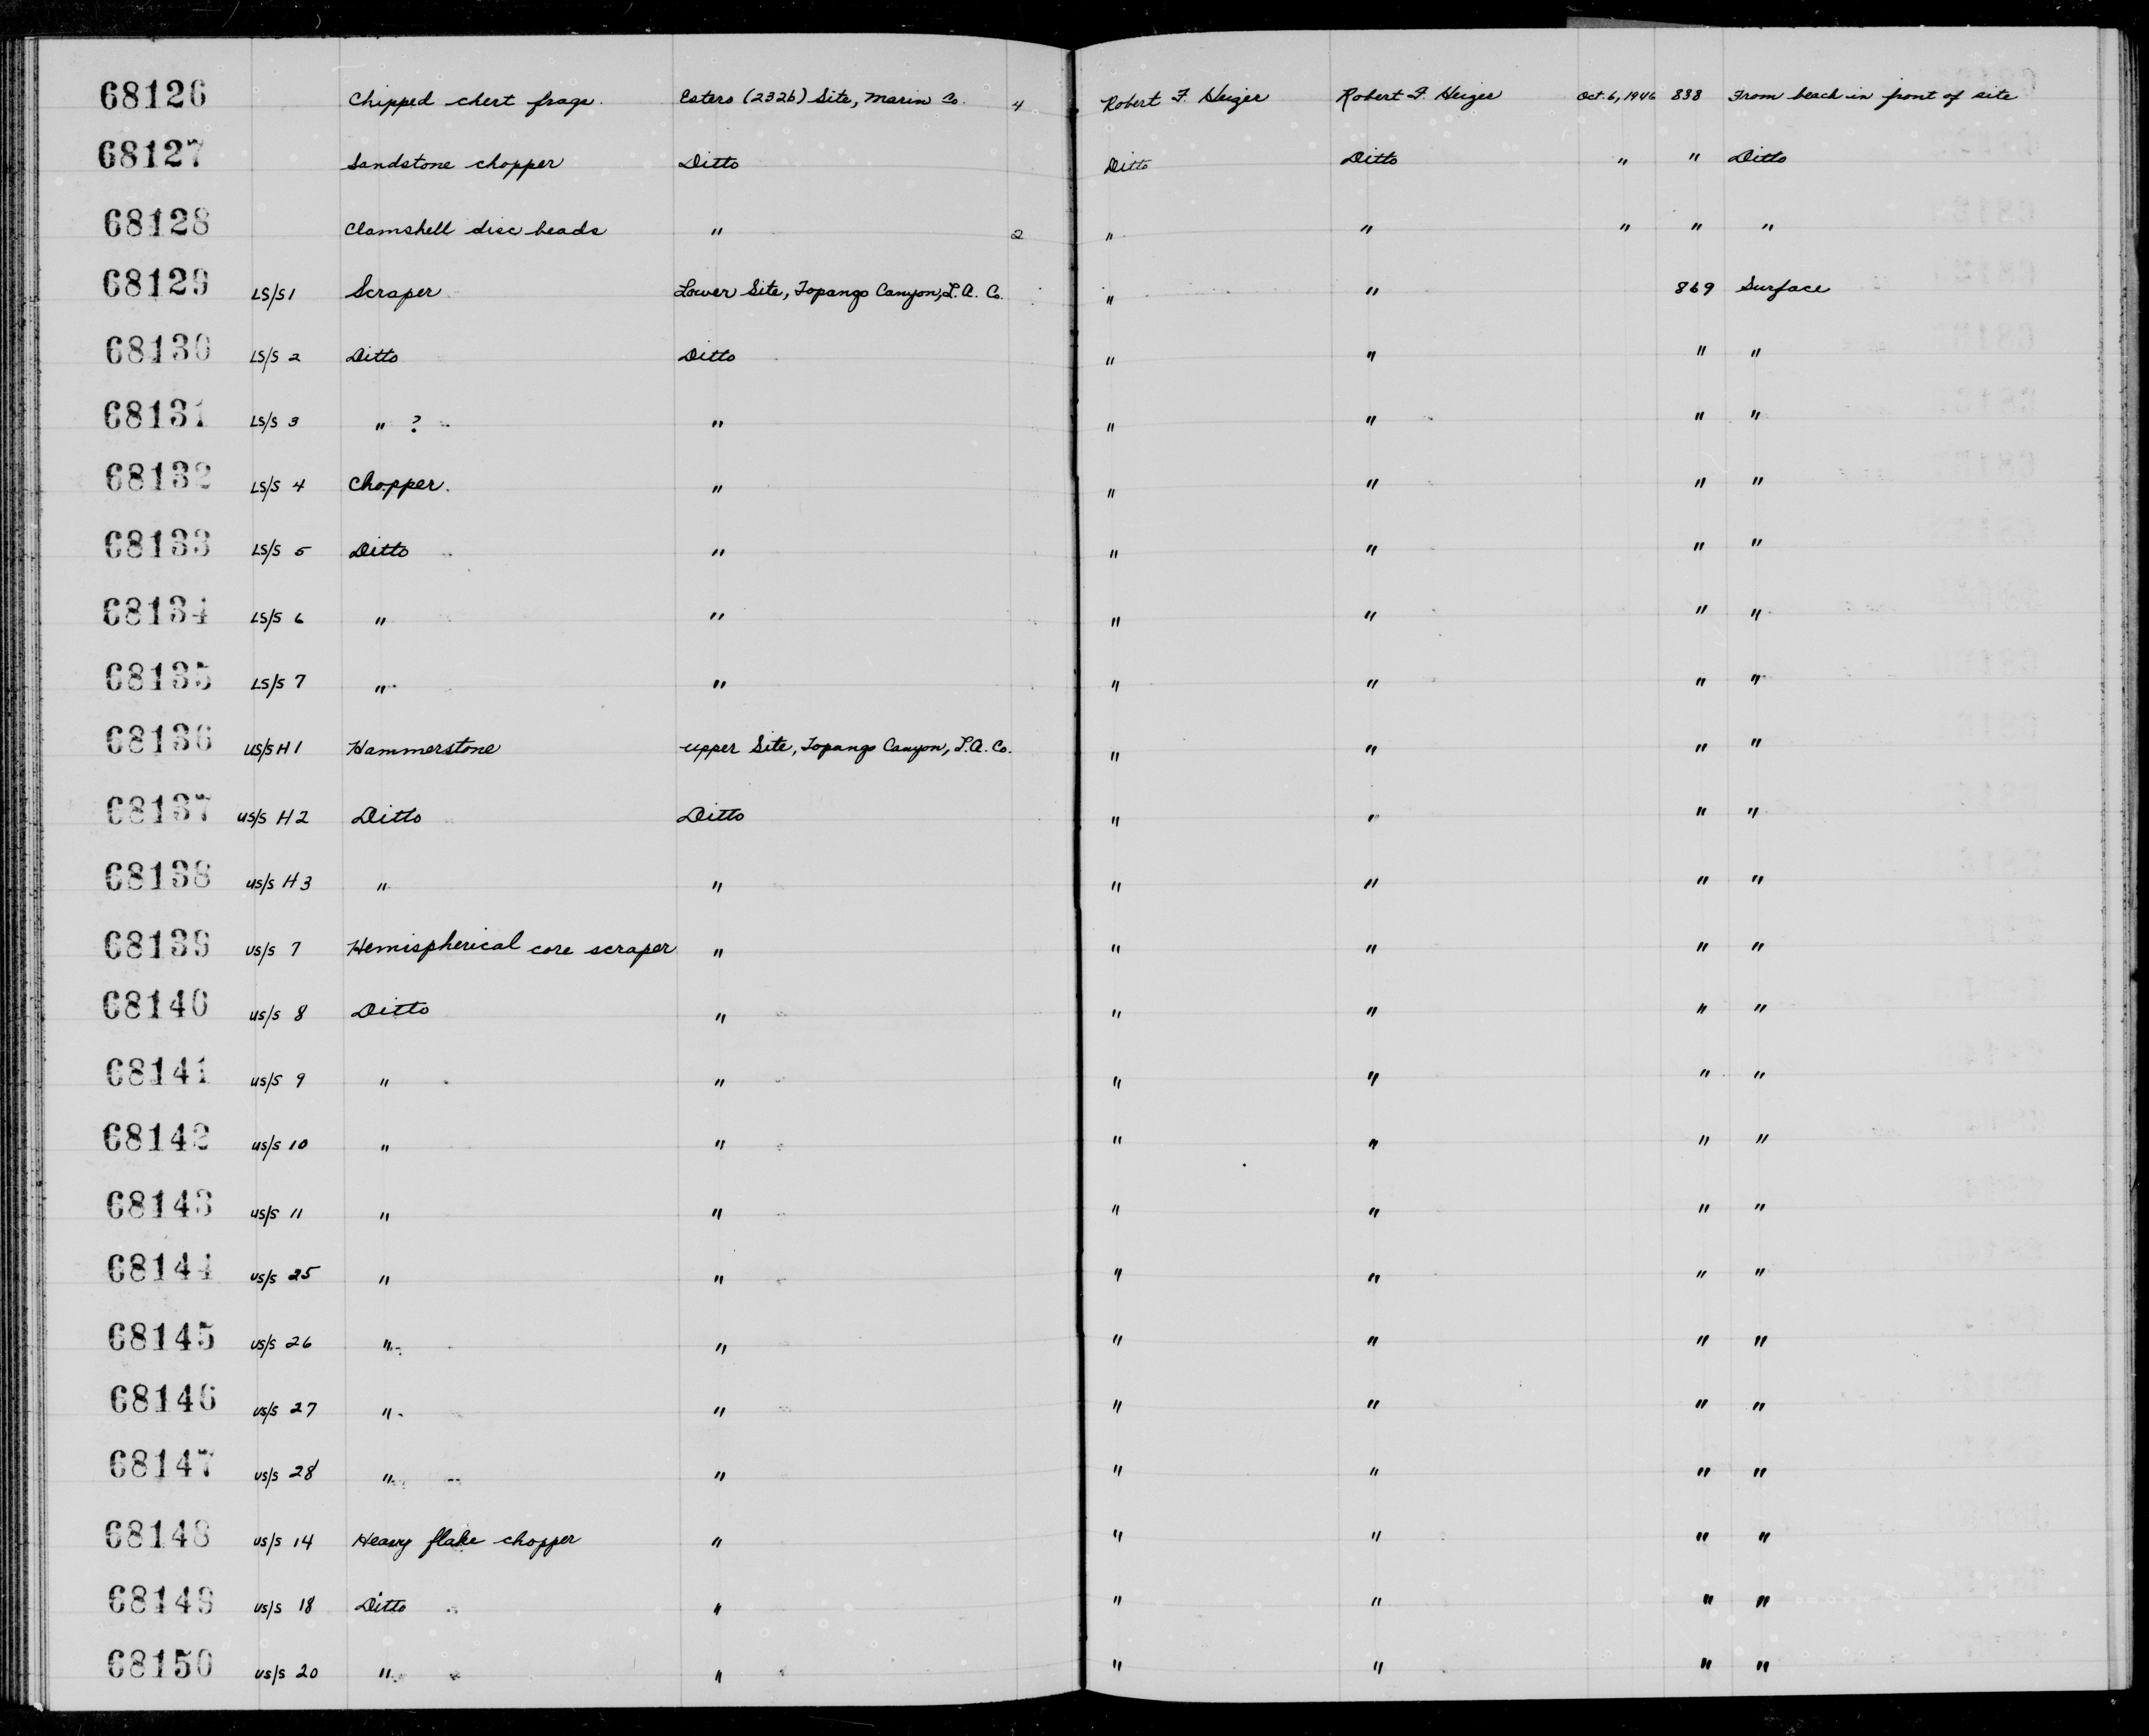 68126 Chipped chert frags. Estero (232b) Site, Marin Co. 4 Robert F. Heizer Robert F. Heizer Oct. 6, 1946 838 From beach in front of site
68127 Sandstone chopper Ditto Ditto Ditto " " Ditto
68128 Clamshell disc beads " 2 " " " " "
68129 LS/S1 Scraper Lower Site, Topango Canyon, L.A. Co. " " 869 Surface
68130 LS/S 2 Ditto Ditto " " " "
68131 LS/S 3 " ? " " " " "
68132 LS/S 4 Chopper. " " " " "
68133 LS/S 5 Ditto " " " " "
68134 LS/S 6 " " " " " "
68135 LS/S 7 " " " " " "
68136 US/S H1 Hammerstone Upper Site, Topango Canyon, L.A. Co. " " " "
68137 US/S H2 Ditto Ditto " " " "
68138 US/S H3 " " " " " "
68139 US/S 7 Hemispherical core scraper " " " " "
68140 US/S 8 Ditto " " " " "
68141 US/S 9 " " " " " "
68142 US/S 10 " " " " " "
68143 US/S 11 " " " " " "
68144 US/S 25 " " " " " "
68145 US/S 26 " " " " " "
68146 US/S 27 " " " " " "
68147 US/S 28 " " " " " "
68148 US/S 14 Heavy flake chopper " " " " "
68149 US/S 18 Ditto " " " " "
68150 US/S 20 " " " " " "